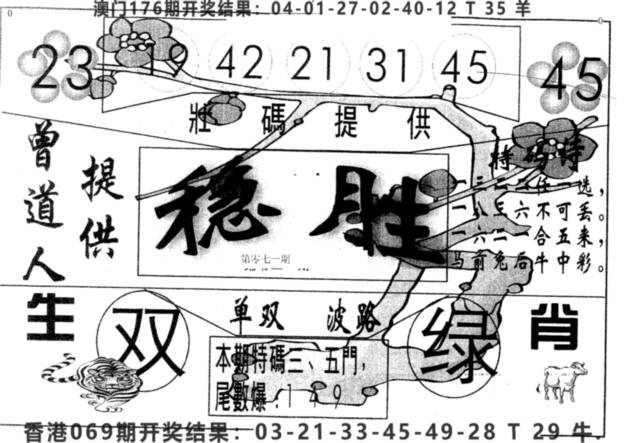 澳门176期开奖结果：04-01-27-02-40-12 T 35 羊
23 19 42 21 31 45 45
壯碼提供
曾道人
提供
稳胜
第零七一期
特码诗
一三二八任一选，
一八三六不可丢。
一六二一合五来，
马前兔后牛中彩。
生 肖
单双 波路
双 绿
本期特碼三、五門，
尾數爆：1 4 9
香港069期开奖结果：03-21-33-45-49-28 T 29 牛